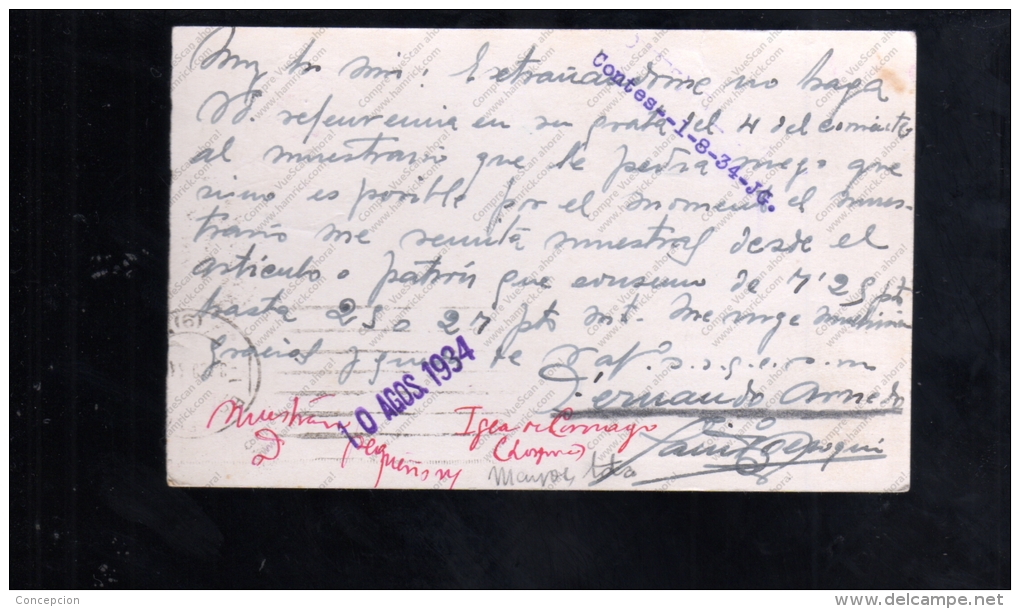 Muy Sr mio: Extrañandome no haga
Vd referencia en su grata del 4 del corriente
al muestrario que le pedia ruego que
sino es posible por el momento el mues-
trario me remita muestras desde el
articulo o patrón que consumo de 7'25 pts
hasta 25 o 27 pts mt. Me urge muchisimo
gracias y quedo de Vd af. s. s. q. e. s. m
Fernando Arnedo
Contes.-1-8-34-JG.
10 AGOS. 1934
Muestrario
Pequeños
Igea de Cornago
(Logroño)
Concepcion
www.delcampe.net